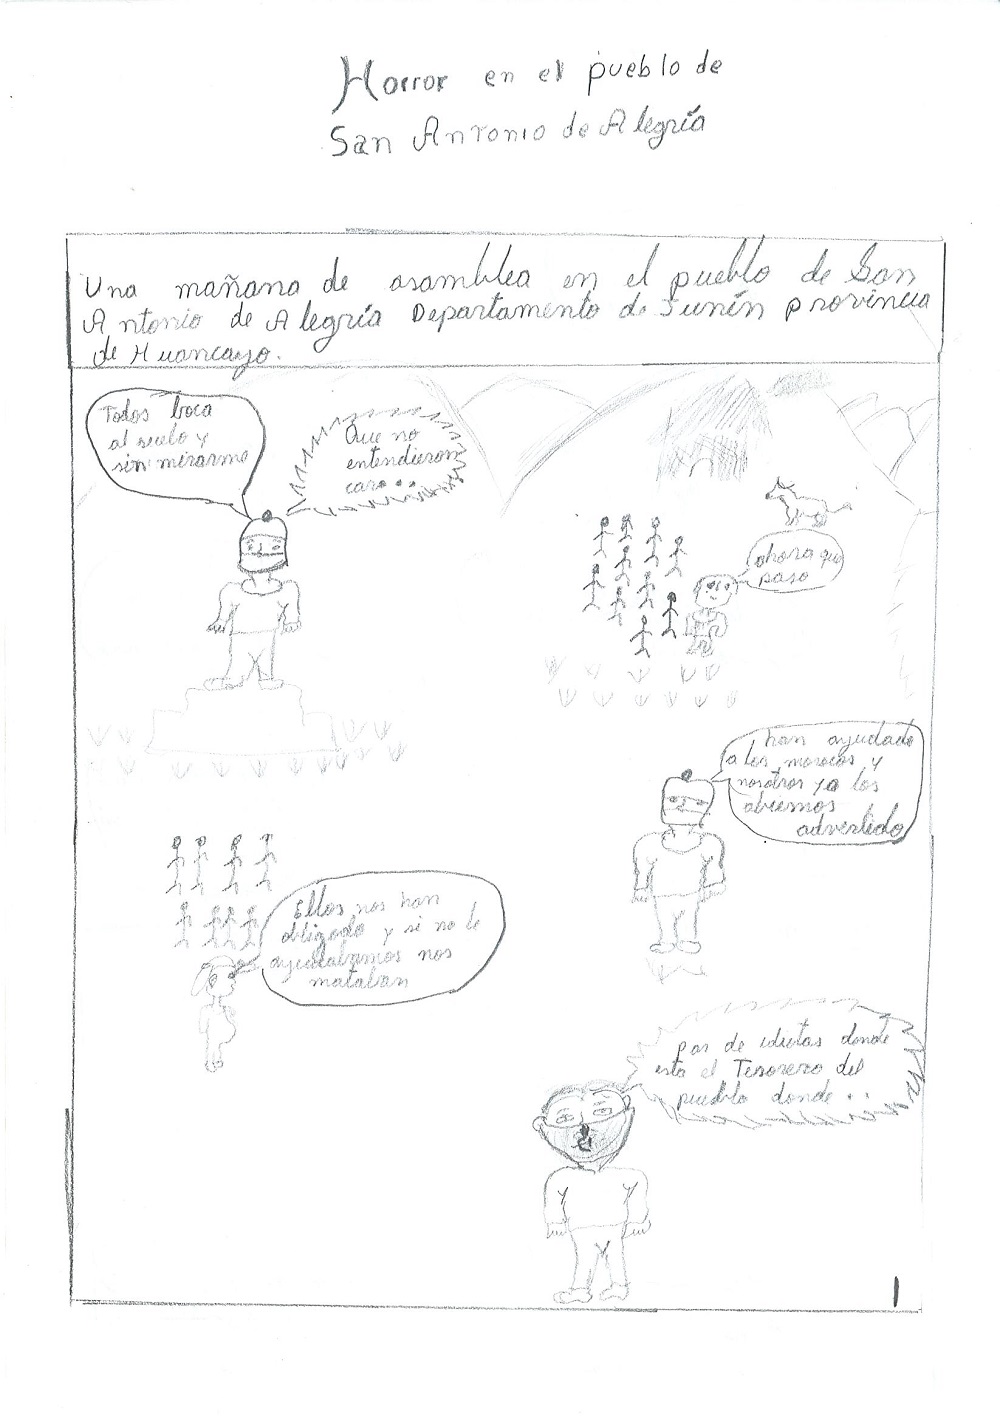 Horror en el pueblo de
San Antonio de Alegría
Una mañana de asamblea en el pueblo de San
Antonio de Alegría Departamento de Junín provincia
de Huancayo.
Todos boca
al suelo y
sin mirarme
Que no
entendieron
caro...
ahora que
paso
han ayudado
a los morocos y
nosotros ya los
abiemos
advertido
Ellos nos han
obligado y si no le
ayudabamos nos
mataban
par de idiotas donde
esta el Tesorero del
pueblo donde..
1